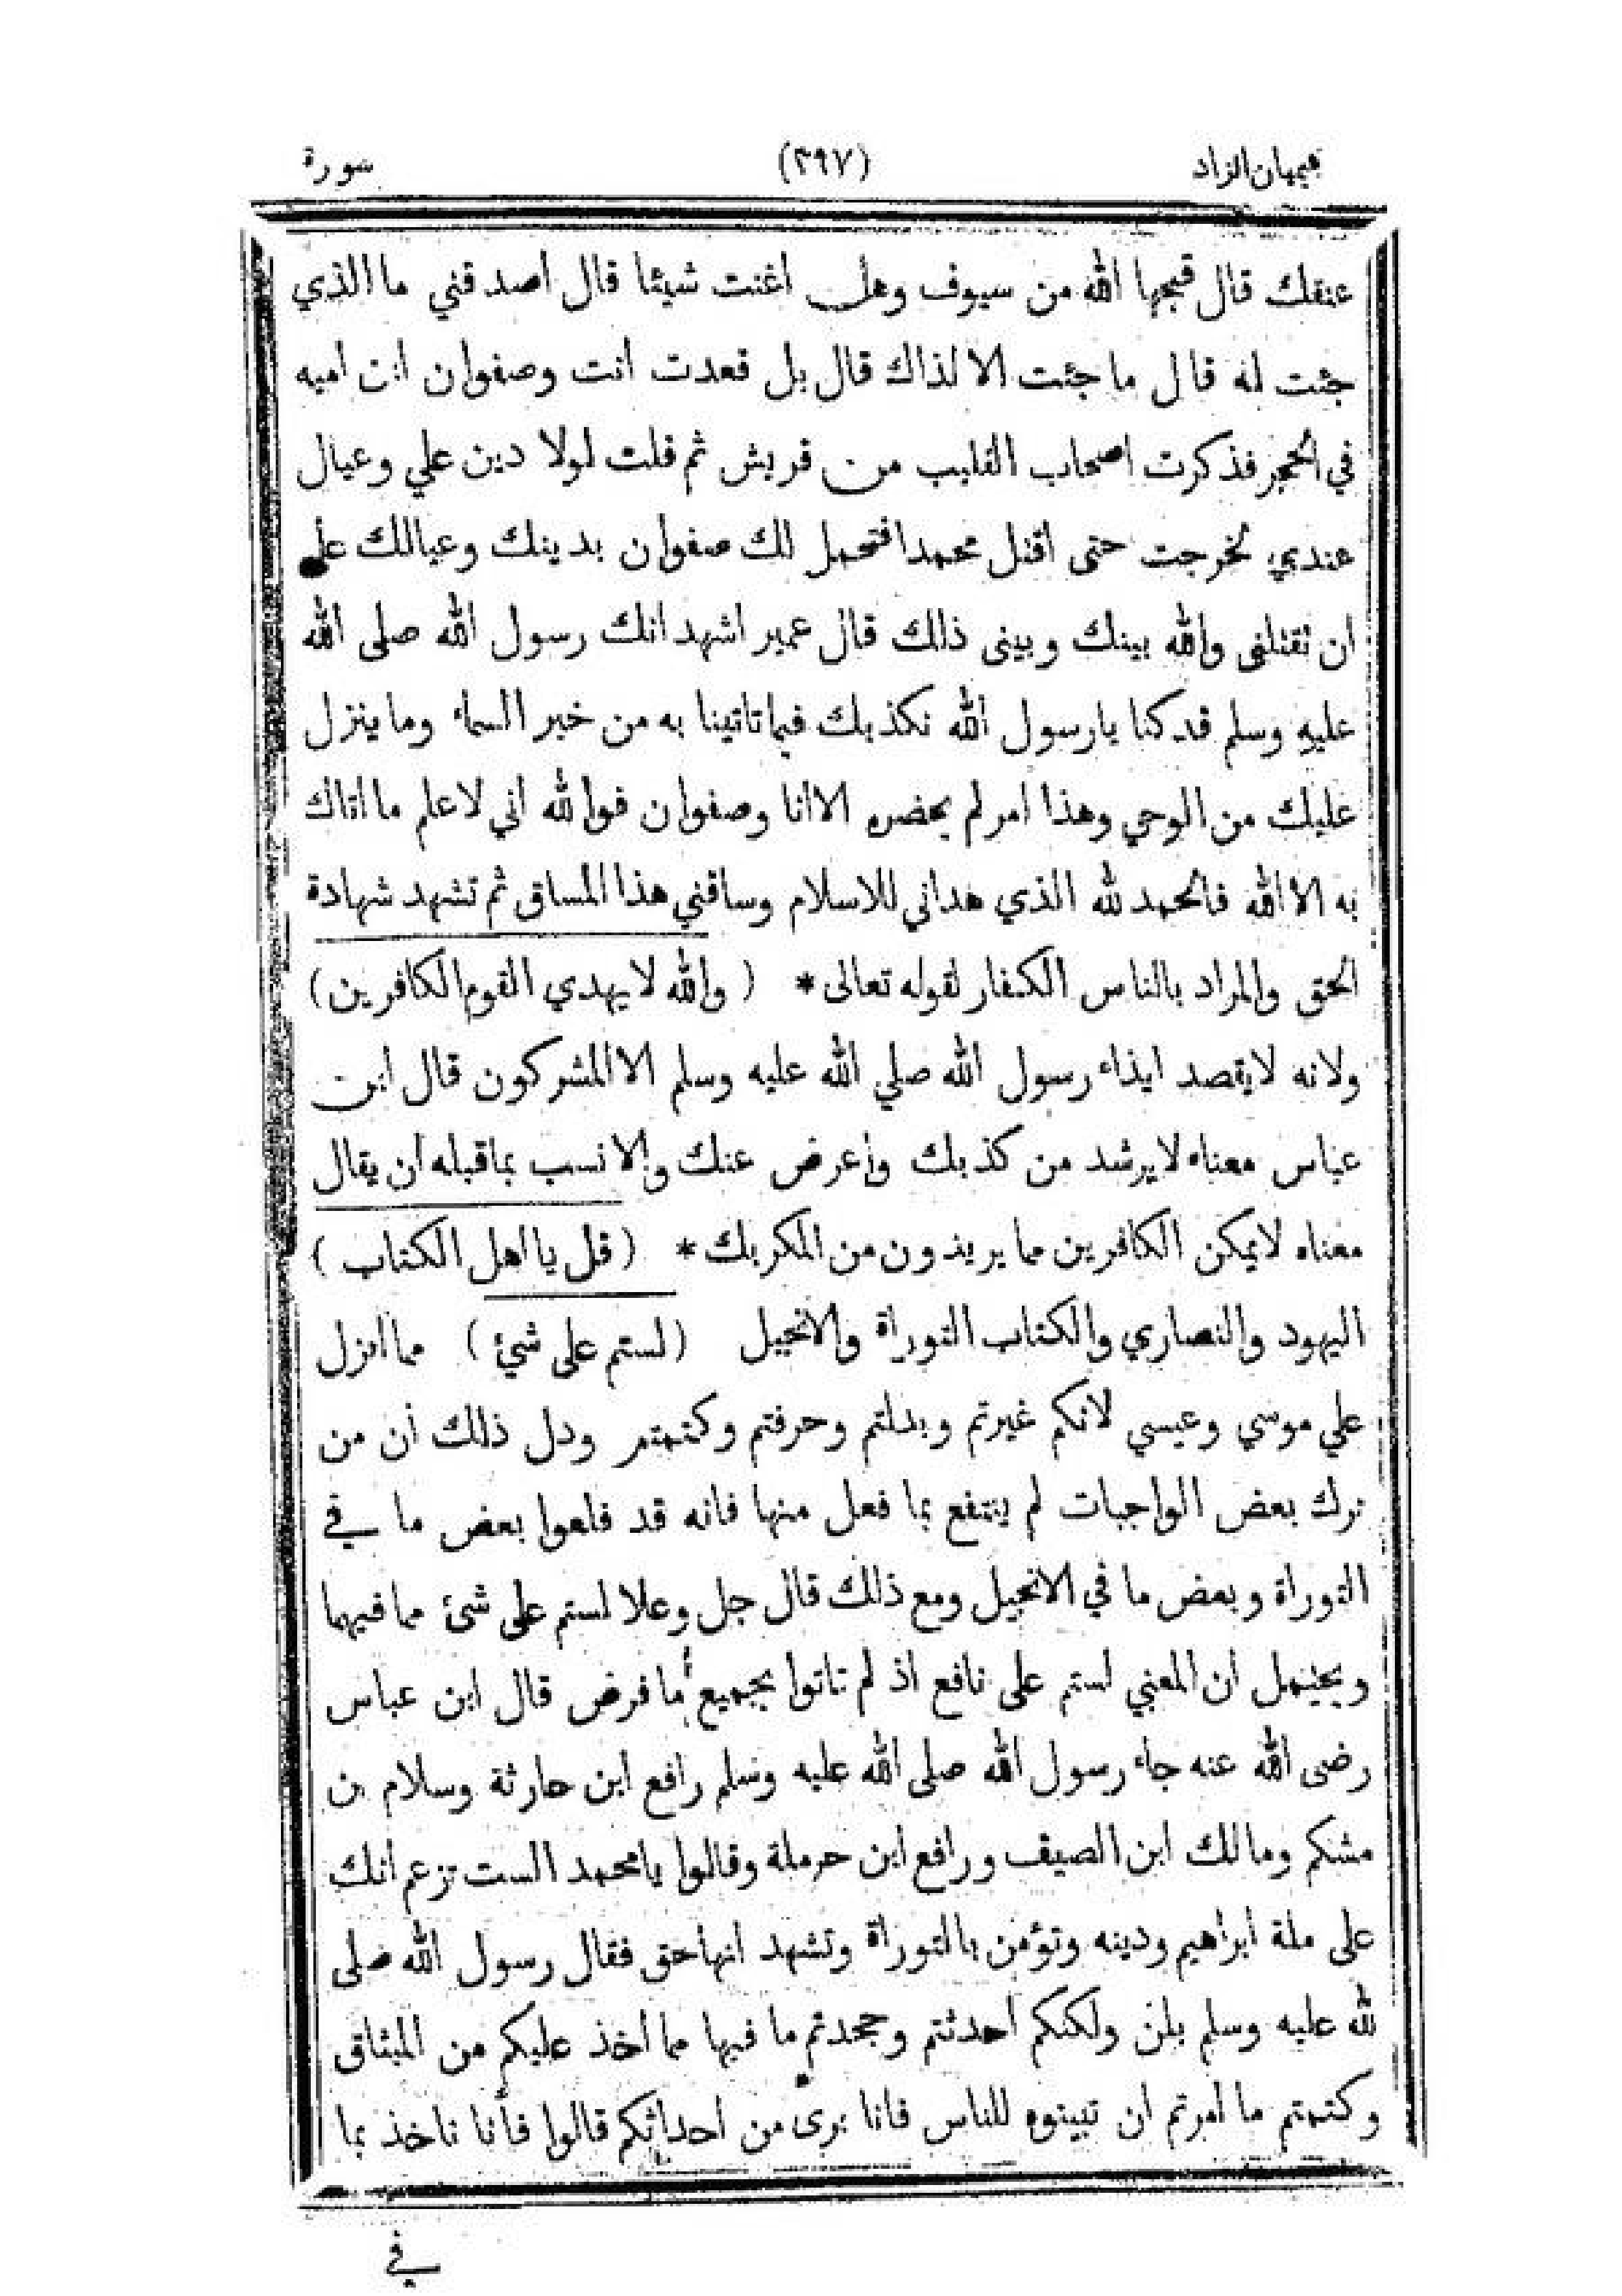 هيميان الزاد (٣٩٧) سورة
عنقك قال قبحها الله من سيوف وهل اغنت شيئا قال اصدقني ما الذي
جئت له قال ما جئت الا لذاك قال بل قعدت أنت وصفوان ابن أميه
في الحجر فذكرت اصحاب القليب من قريش ثم قلت لولا دين علي وعيال
عندي لخرجت حتى اقتل محمدا فتحمل لك صفوان بدينك وعيالك على
ان تقتلني والله بينك وبيني ذلك قال عمير اشهد انك رسول الله صلى الله
عليه وسلم قد كنا يا رسول الله نكذبك فيما تاتينا به من خبر السماء وما ينزل
عليك من الوحي وهذا امر لم يحضره الا انا وصفوان فوالله اني لا علم ما اتاك
به الا الله فالحمد لله الذي هداني للاسلام وساقني هذا المساق ثم تشهد شهادة
الحق والمراد بالناس الكفار لقوله تعالى * ( والله لا يهدي القوم الكافرين )
ولانه لا يقصد ايذاء رسول الله صلي الله عليه وسلم الا المشركون قال ابن
عباس معناه لا يرشد من كذبك وأعرض عنك والانسب بما قبله ان يقال
معناه لا يمكن الكافرين مما يريدون من المكر بك * ( قل يا اهل الكتاب )
اليهود والنصاري والكتاب التوراة والانجيل ( لستم على شيئ ) مما أنزل
علي موسي وعيسي لانكم غيرتم وبدلتم وحرفتم وكتمتم ودل ذلك أن من
ترك بعض الواجبات لم ينتفع بما فعل منها فانه قد فلعوا بعض ما في
التوراة وبعض ما في الانجيل ومع ذلك قال جل وعلا لستم على شئ مما فيهما
ويحتمل ان المعني لستم على نافع اذ لم تاتوا بجميع ما فرض قال ابن عباس
رضى الله عنه جاء رسول الله صلى الله عليه وسلم رافع ابن حارثة وسلام بن
مشكم ومالك ابن الصيف ورافع ابن حرملة وقالوا يا محمد الست تزعم انك
على ملة ابراهيم ودينه وتؤمن بالتوراة وتشهد انها حق فقال رسول الله صلى
لله عليه وسلم بلن ولكنكم احدثتم وجحدتم ما فيها مما أخذ عليكم من الميثاق
وكتمتم ما أمرتم ان تبينوه للناس فانا برئ من احداثكم قالوا فأنا ناخذ بما
في